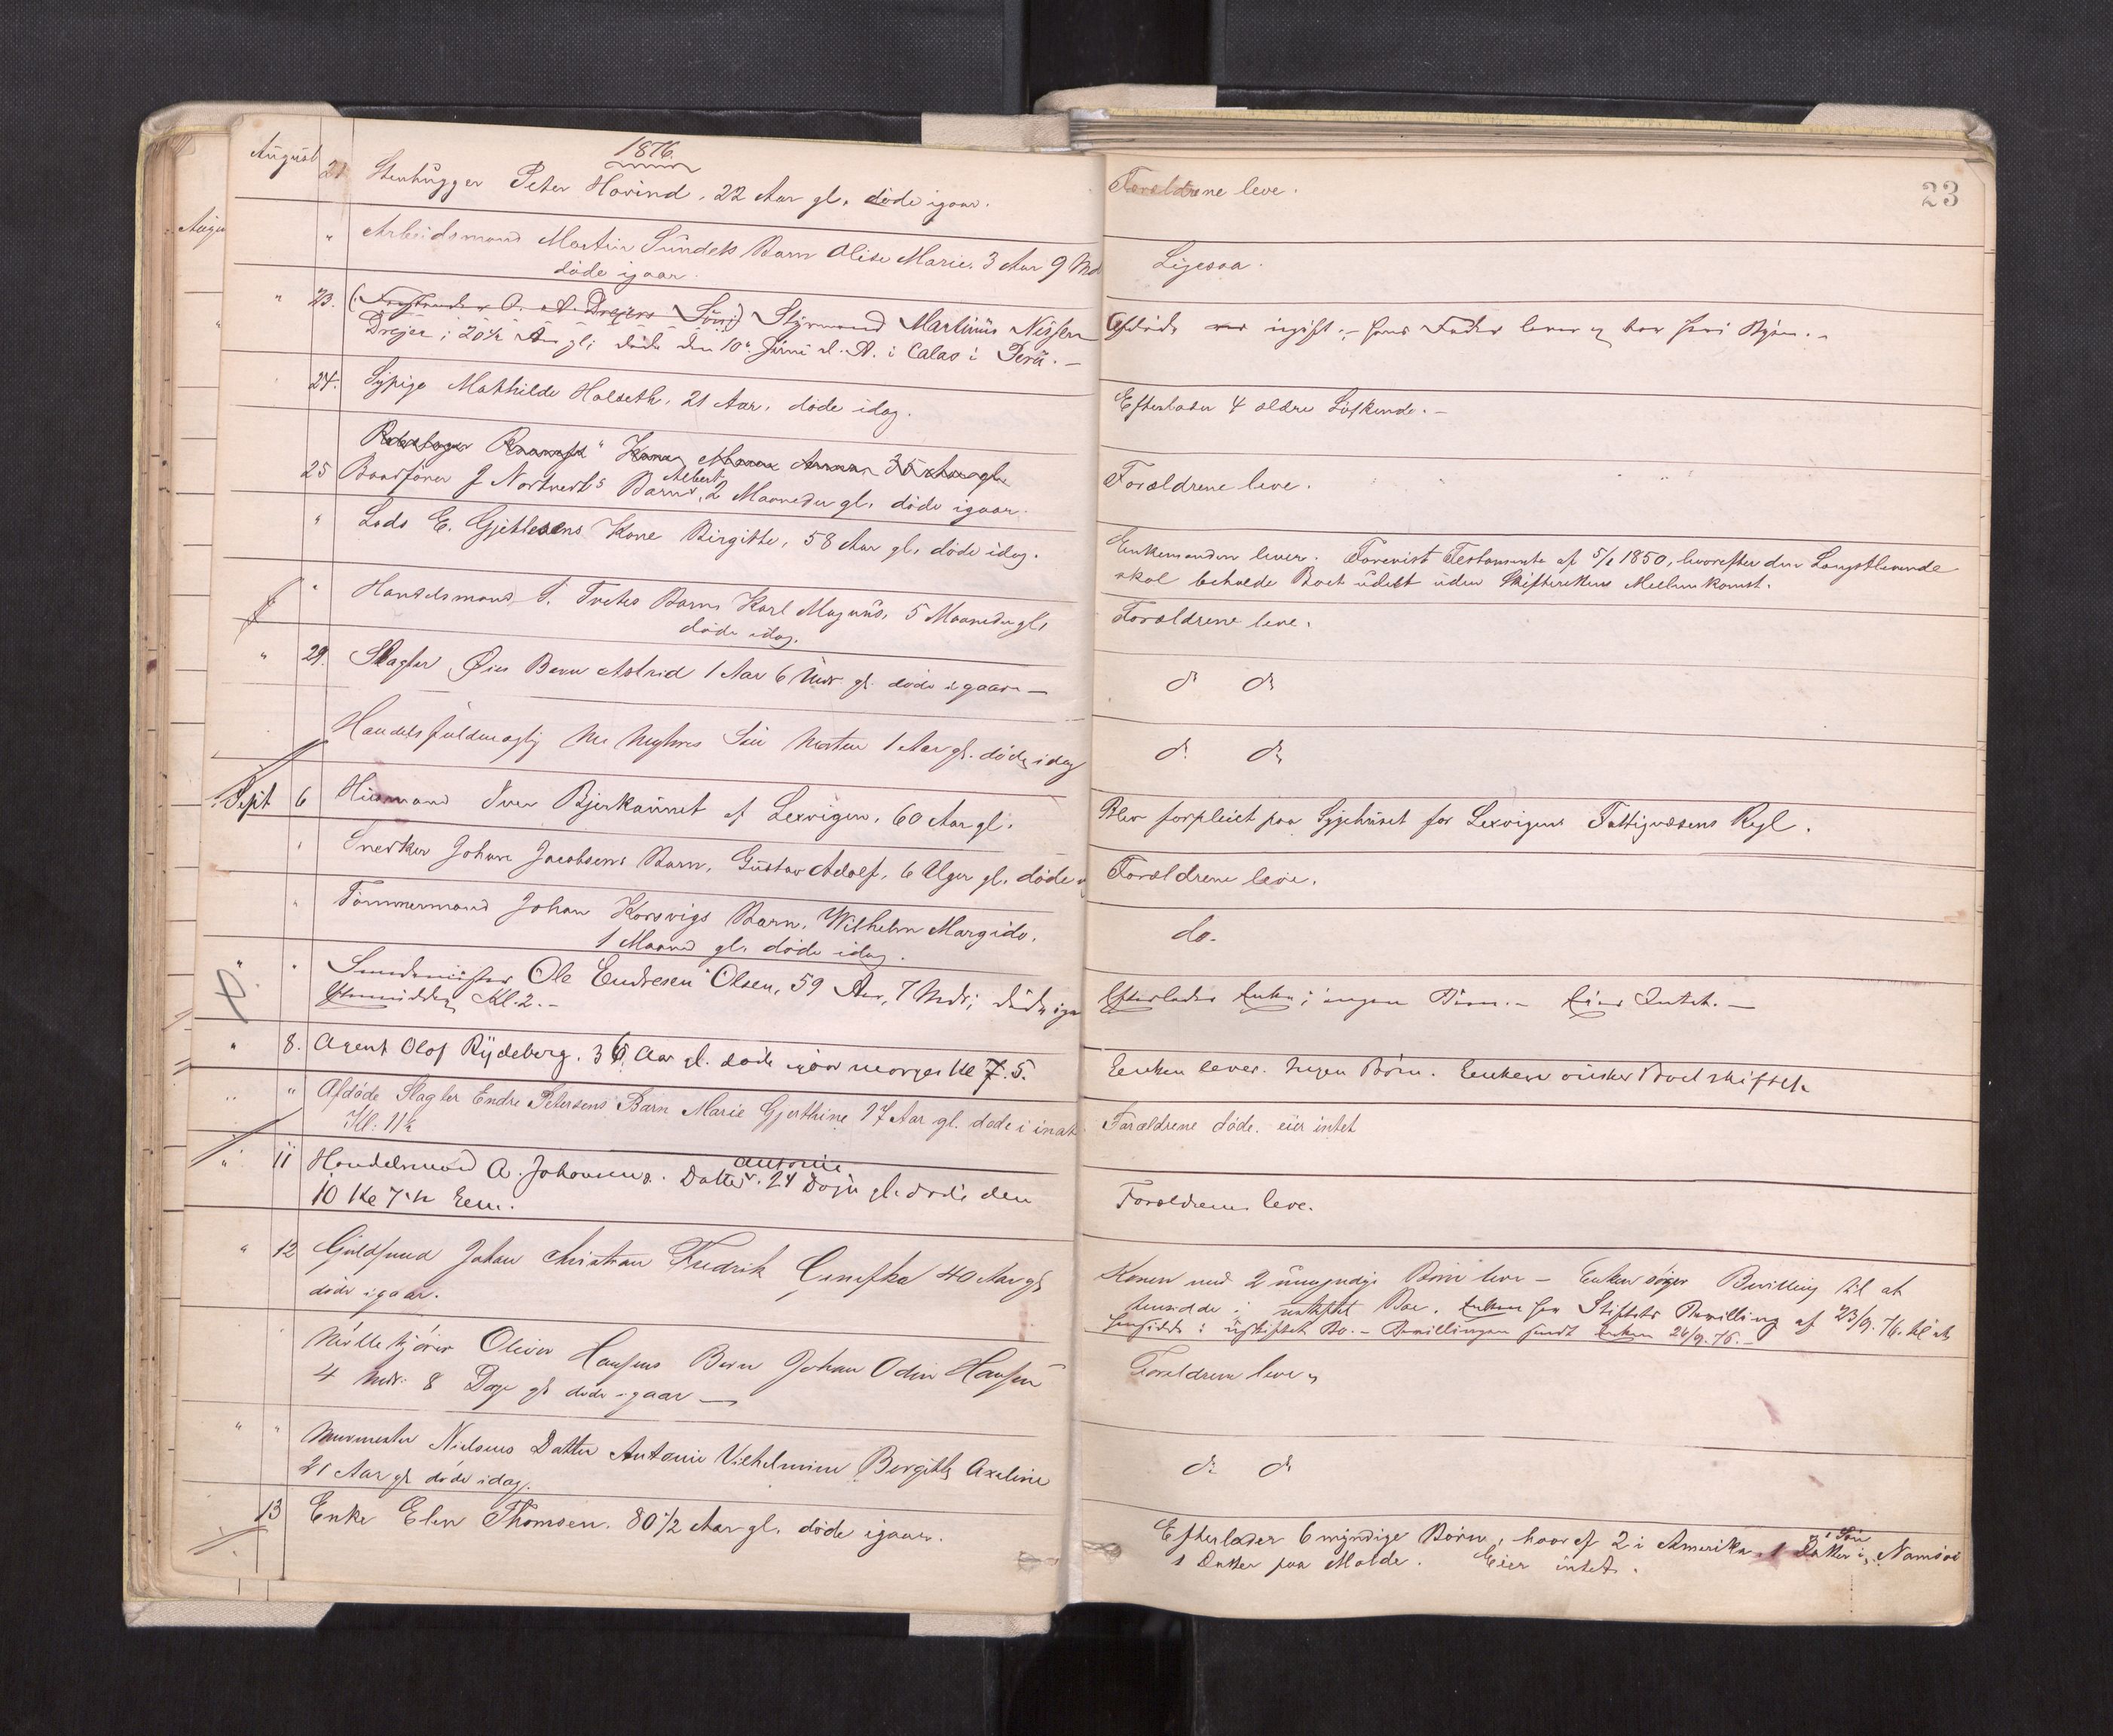 1876.
August 21 Stenhugger Peter Hovind, 22 Aar gl. døde igaar.
" Arbeidsmand Martin Sundets Barn Olise Marie, 3 Aar 9 Md
døde igaar.
" 23. O. A. Drejers Søn Styrmand Martinus Nissen
Drejer; 20½ Aar gl; døde den 10de Juni d. A. i Calao i Perü. -
24. Sypige Mathilde Halseth, 21 Aar, døde idag.
Kone Anna 35 Aar gl.
25 Baadfører J Nortvedts Barn Albert, 2 Maaneder gl. døde igaar.
" Lods E. Gjetlesens Kone Birgitte, 58 Aar gl. døde idag.
" Handelsmand S. Tretes Barn Karl Magnus, 5 Maaneder gl.
døde idag.
" 29. Slagter Øies Barn Astrid 1 Aar 6 Mdr. gl. døde igaar -
Handelsfuldmægtig Søn Morten 1 Aar gl. døde idag
Sept 6 Huusmand Iver Bjerkaunet af Lexvigen, 60 Aar gl.
" Snedker Johan Jacobsens Barn, Gustav Adolf, 6 Uger gl. døde
" Tømmermand Johan Korsvigs Barn, Wilhelm Margido,
1 Maaned gl. døde idag.
" " Ole Endresen Olsen, 59 Aar, 7 Mdr; døde
Eftermiddag Kl. 2. -
" 8. Agent Olof Rydeberg. 36 Aar gl. døde igaar morges Kl 7. 5.
" " Afdøde Slagter Endre Petersens Barn Marie Gjerthine 17 Aar gl. døde i inat
Kl: 11½
" 11 Handelsmand A. Johannes. Datter Antonie. 24 Dage gl. døde den
10 Kl 7½ Em.
" 12 Guldsmed Johan Christian Fredrik 40 Aar gl
døde igaar.
Møllekjører Oliver Hansens Barn Johan Odin Hansen
4 Mdr. 8 Dage gl døde igaar
" " Murmester Nielsens Datter Antonie Vilhelmine Bergitte Axeline
21 Aar gl døde idag.
13 Enke Elen Thomsen. 80½ Aar gl. døde igaar.
23
Forældrene leve.
Ligesaa.
Afdøde var ugift; - hans Fader lever og bor her i Byen. -
Efterlader 4 ældre Søskende. -
Forældrene leve.
Enkemanden lever. Forevist Testamente af 5/1 1850, hvorefter den Længstlevende
skal beholde Boet udelt uden Skifterettens Mellemkomst.
Forældrene leve.
do do
do do
Blev forpleiet paa Sygehuset for Lexvigens Fattigvæsens Regl.
Forældrene leve.
do.
Efterlader Enke; ingen Børn. - Eier Intet. -
Enken lever. Ingen Børn. Enken ønsker Boet skiftet
Forældrene døde. eier intet
Forældrene leve.
Konen med 2 umyndige Børn leve - Enken søger Bevilling til at
hensidde i uskiftet Boe. Enken har Stiftets Bevilling af 23/9. 76. til at
hensidde i uskiftet Bo. - Bevillingen sendt Enken 26/9. 76. -
Forældrene leve
do do
Efterlader 6 myndige Børn, hvoraf 2 i Amerika, 1 Datter Søn i Namsos
1 Datter paa Molde. Eier intet.